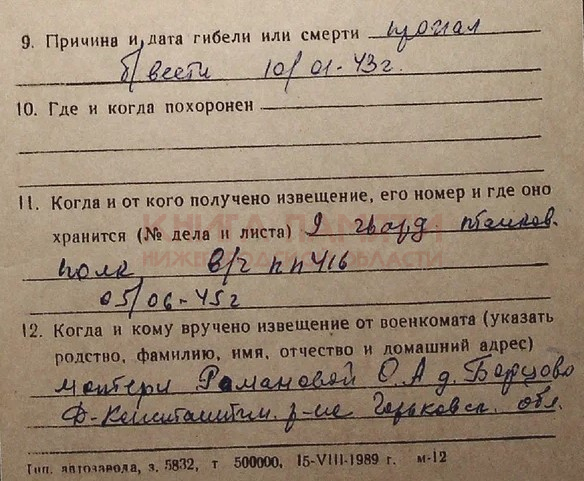 9. Причина и дата гибели или смерти пропал
б/вести 10/01-43г.
10. Где и когда похоронен
11. Когда и от кого получено извещение, его номер и где оно
хранится (№ дела и листа) 9 гвард танков.
КНИГА ПАМЯТИ
НИЖЕГОРОДСКОЙ ОБЛАСТИ
полк в/ч пп 416
05/06-45г
12. Когда и кому вручено извещение от военкомата (указать
родство, фамилию, имя, отчество и домашний адрес)
матери Рамановой О.А д. Борцово
Д-Констант. р-не Горьковск. обл.
Тип. автозавода, з. 5832, т 500000, 15-VIII-1989 г. м-12